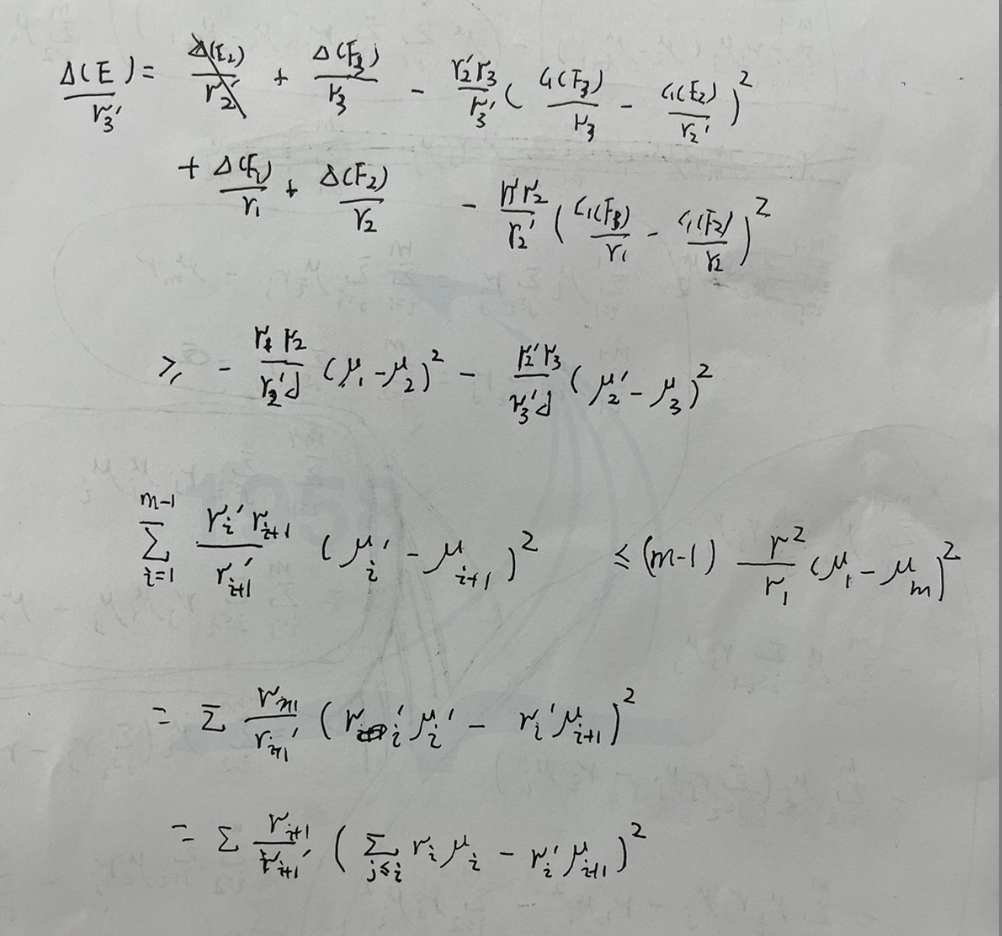 Δ(E)/r₃′ = Δ(E₂)/r₂′ + Δ(F₃)/r₃ − r₂′r₃/r₃′ ( c₁(F₃)/r₃ − c₁(E₂)/r₂′ )²
+ Δ(F₁)/r₁ + Δ(F₂)/r₂ − r₁′r₂/r₂′ ( c₁(F₃)/r₁ − c₁(F₂)/r₂ )²
⩾ − r₁r₂/r₂′d (μ₁ − μ₂)² − r₂′r₃/r₃′d (μ₂′ − μ₃)²
∑_{i=1}^{m−1} r_i′r_{i+1}/r_{i+1}′ (μ_i′ − μ_{i+1})² ≤ (m−1) r²/r₁ (μ₁ − μ_m)²
= Σ r_{i+1}/r_{i+1}′ (r_i′μ_i′ − r_i′μ_{i+1})²
= Σ r_{i+1}/r_{i+1}′ ( ∑_{j≤i} r_i μ_i − r_i′μ_{i+1} )²
1958